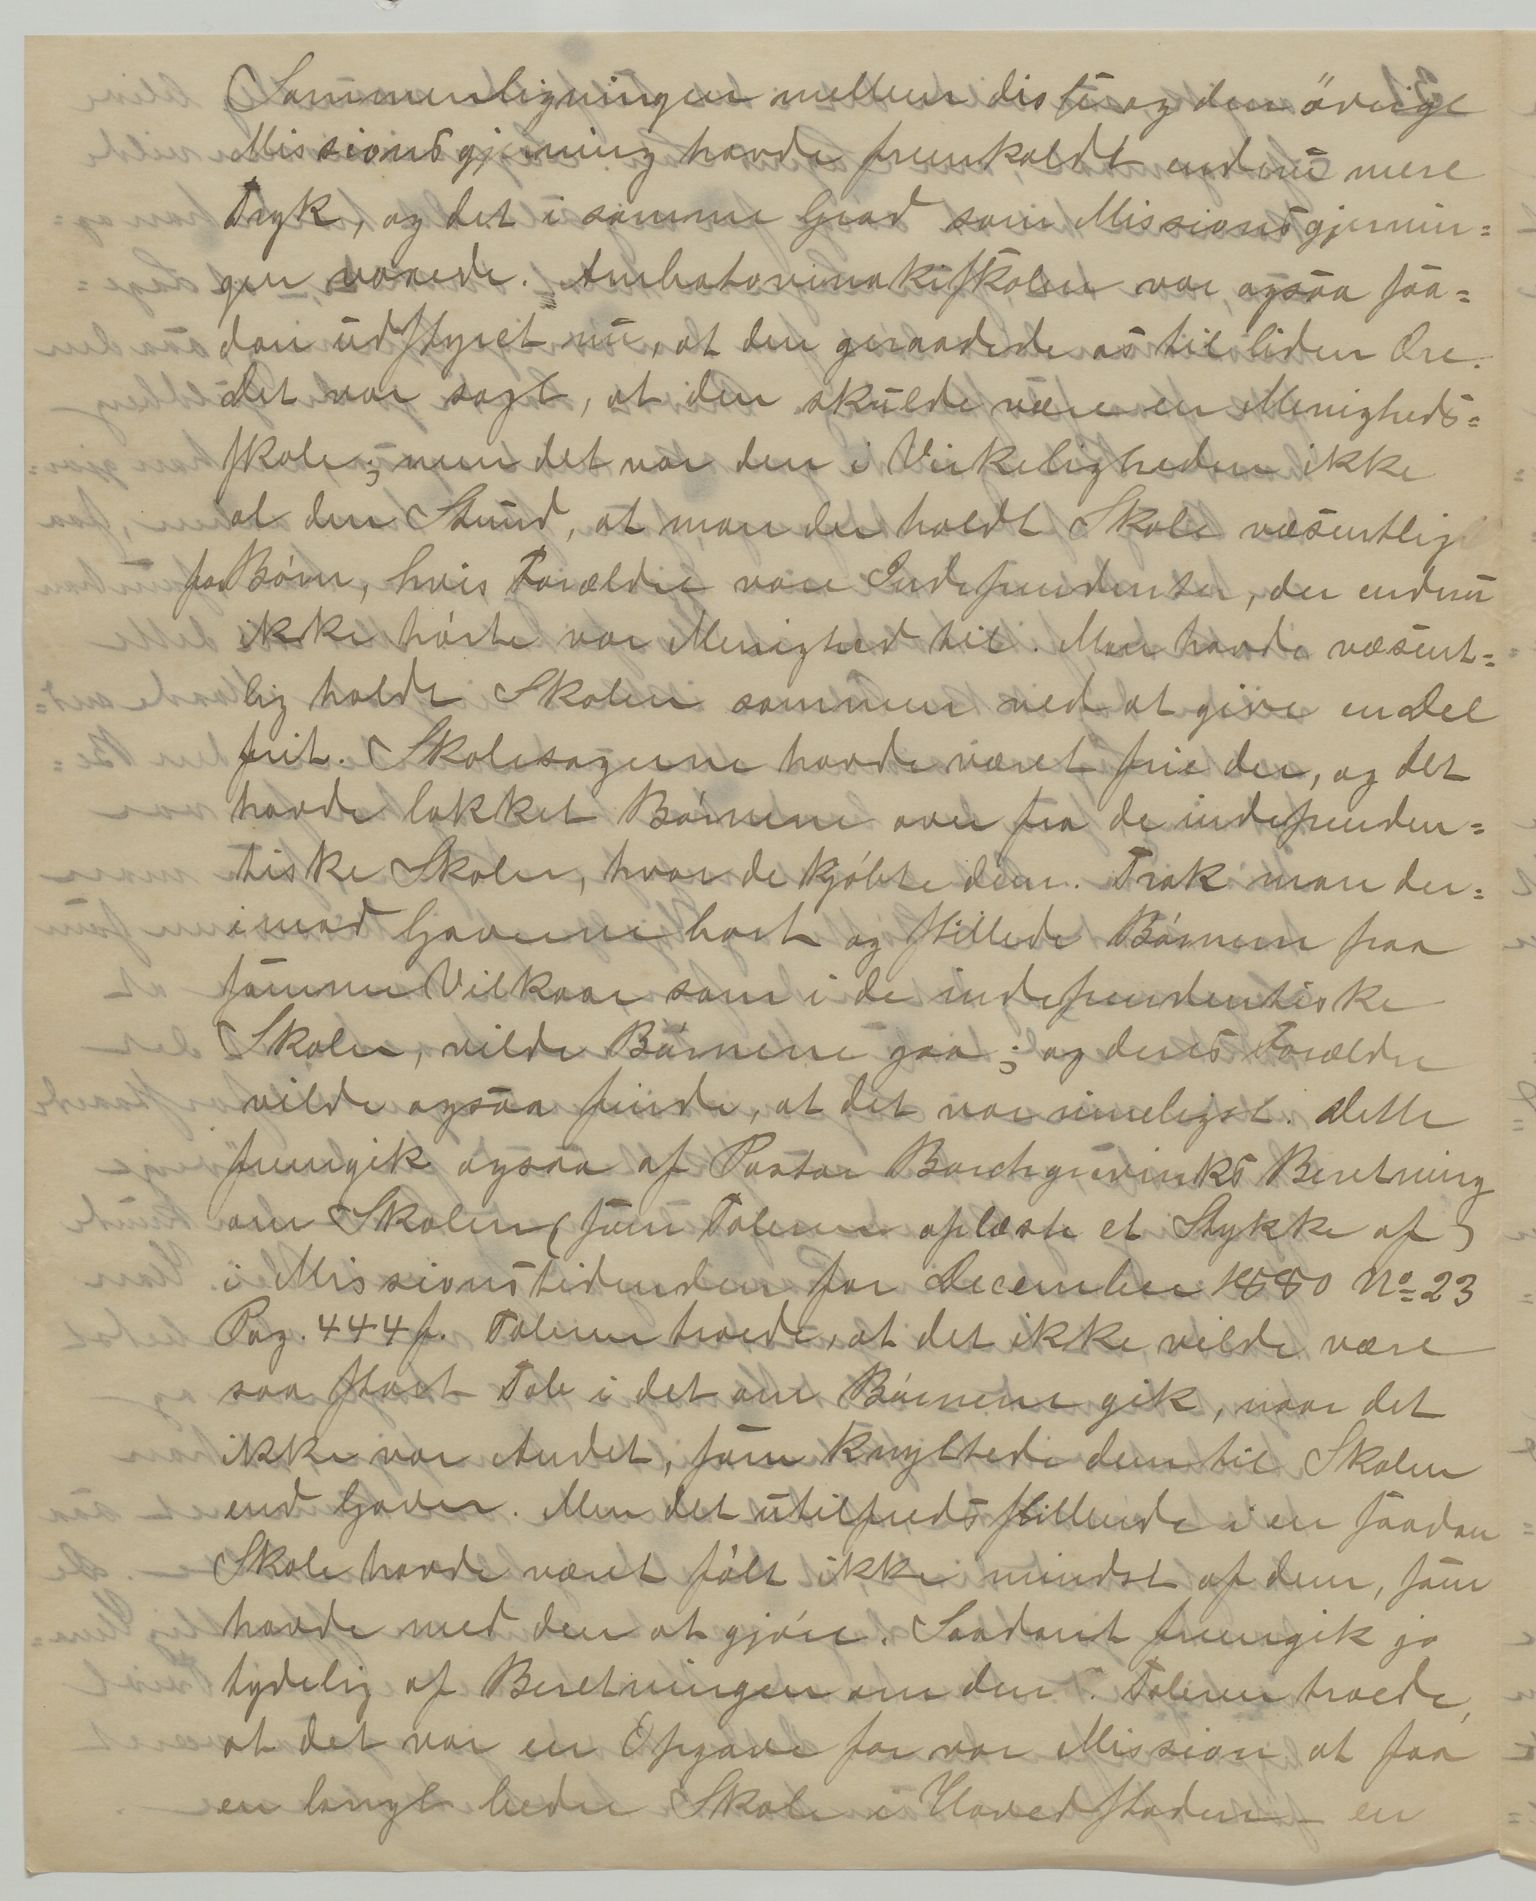 Sammenligningen mellem disse og den övrige
Missionsgjerning havde fremkaldt endnu mere
Tryk, og det i samme Grad som Missionsgjernin=
gen voxede. Ambatovinakiskolen var ogsaa saa=
dan udstyret nu, at den geraadede os til liden Ære.
Det var sagt, at den skulde være en Menigheds=
skole; men det var den i Virkeligheden ikke
al den Stund, at man der holdt Skole væsentlig
for Börn, hvis Forældre vare Independenter, der endnu
ikke hörte vor Menighed til. Man havde væsent=
lig holdt Skolen sammen ved at give en Del
frit. Skolesagerne havde været frie der, og det
havde lokket Börnene over fra de independen=
tiske Skoler, hvor de kjöbte dem. Trak man der=
imod Gaverne bort og stillede Börnene paa
samme Vilkaar, som i de independentiske
Skoler, vilde Börnene gaa; og deres Forældre
vilde ogsaa finde, at det var rimeligst. Dette
fremgik ogsaa af Pastor Borchgrevinks Beretning
om Skolen (som Taleren oplæste et Stykke af)
i Missionstidenden for December 1880 No 23
Pag. 444 f. Taleren troede, at det ikke vilde være
saa stort Tab i det om Börnene gik, naar det
ikke var Andet, som knyttede dem til Skolen
end Gaver. Men det utilfredsstillende i en saadan
Skole havde været fölt ikke mindst af dem, som
havde med den at gjöre. Saadant fremgik jo
tydelig af Beretningen om den. Taleren troede,
at det var en Opgave for vor Mission at faa
en langt bedre Skole i Hovedstaden – en